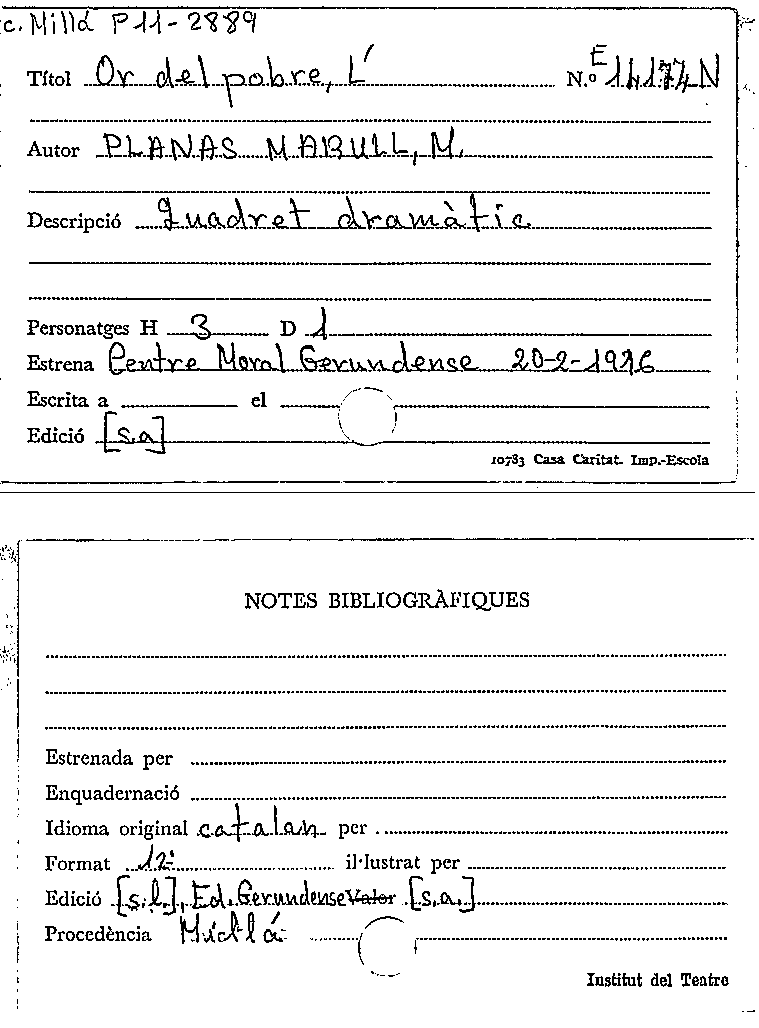 c. Millá P 11-2889
Títol Or del pobre, L' N.º E 14174 N
Autor PLANAS MARULL, M.
Descripció Quadret dramàtic
Personatges H 3 D 1
Estrena Centre Moral Gerundense 20-2-1926
Escrita a el
Edició [s.a]
10783 Casa Caritat. Imp.-Escola
NOTES BIBLIOGRÀFIQUES
Estrenada per
Enquadernació
Idioma original catalan per
Format 12º il·lustrat per
Edició [s.l.], Ed. Gerundense Valor [s.a.]
Procedència Millá
Institut del Teatre